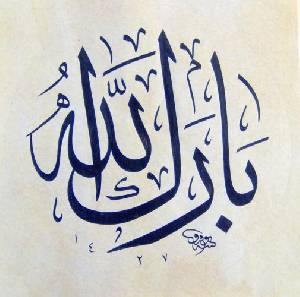 بارك الله
١٤٢٧